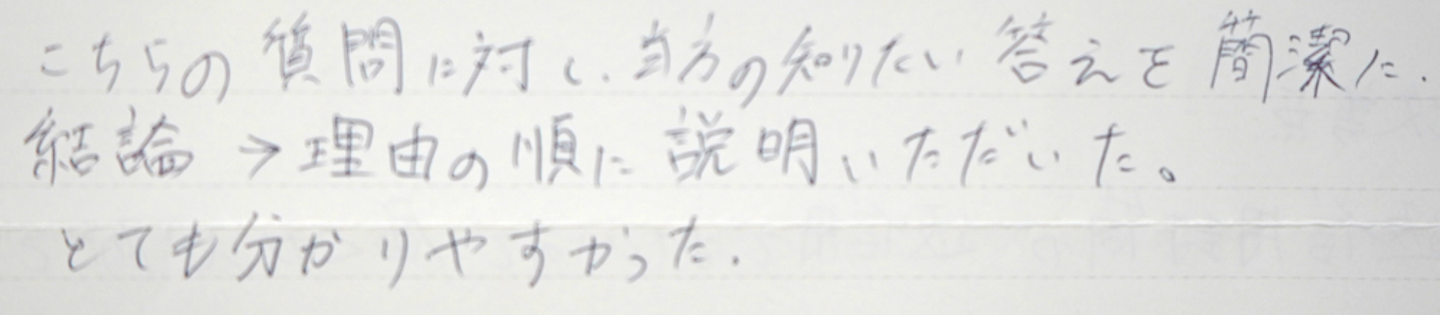 こちらの質問に対し、当方の知りたい答えを簡潔に、
結論→理由の順に説明いただいた。
とても分かりやすかった。